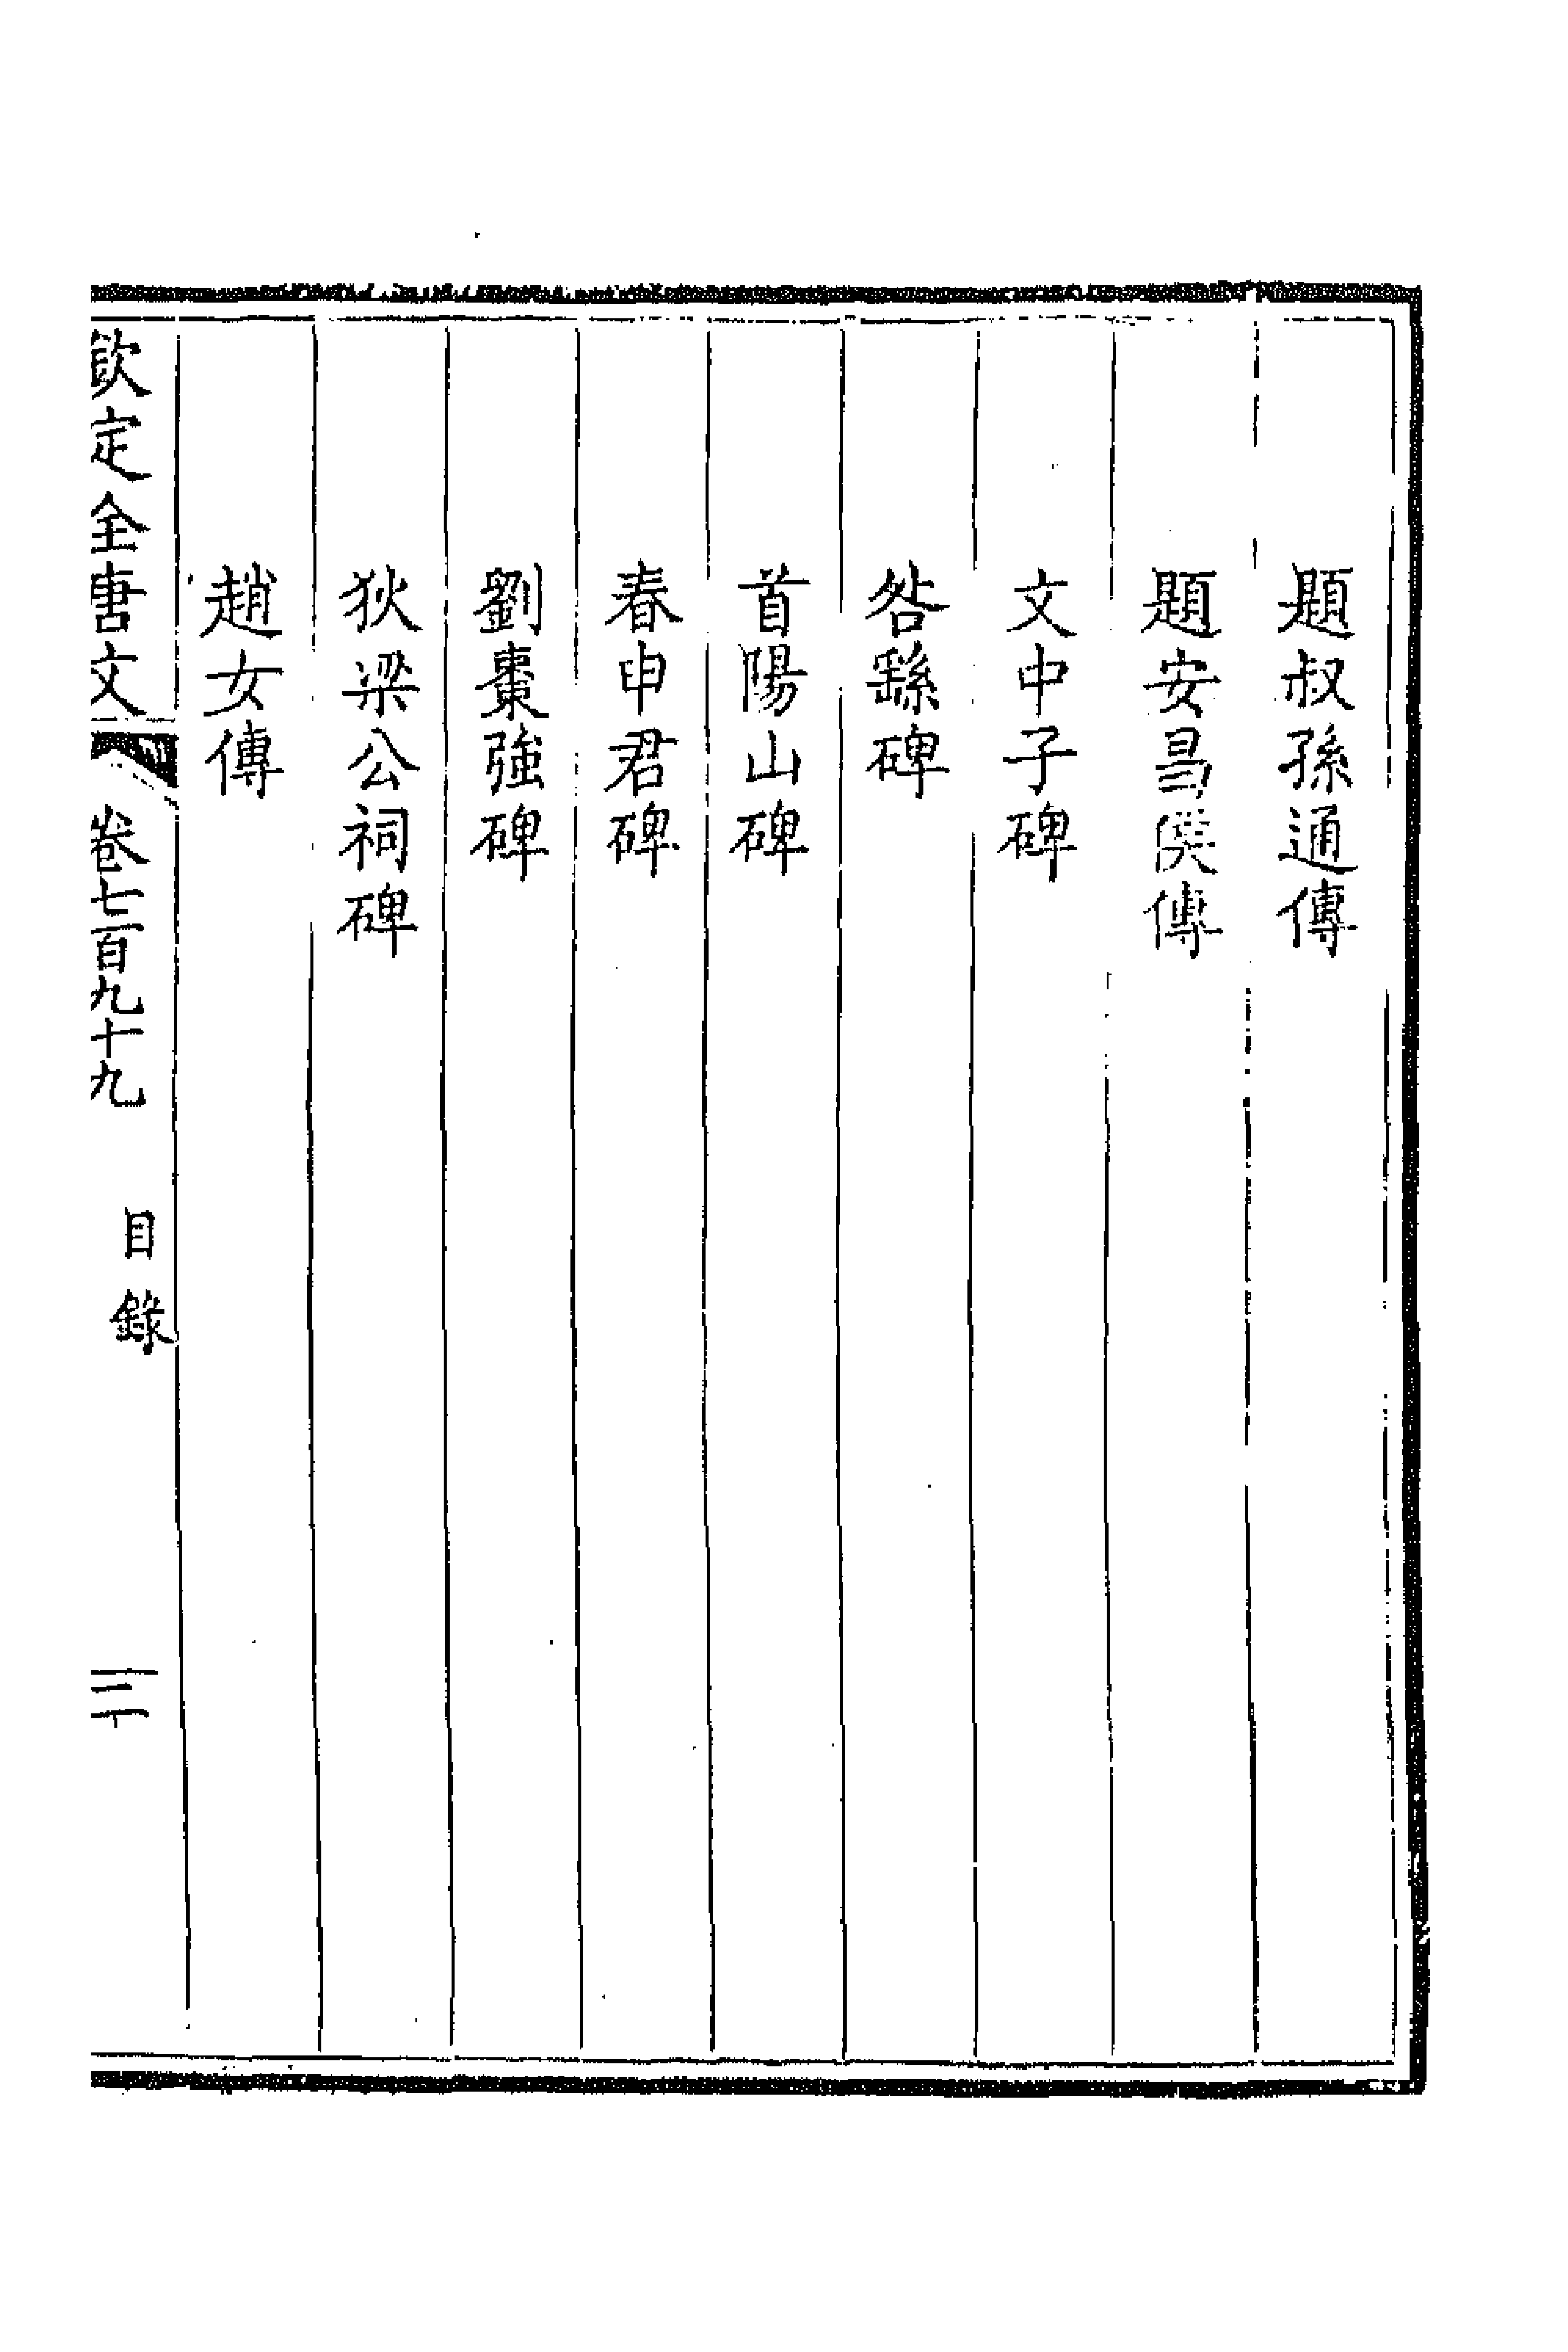 題叔孫通傳
題安昌侯傳
文中子碑
咎繇碑
首陽山碑
春申君碑
劉棗強碑
狄梁公祠碑
趙女傳
欽定全唐文 卷七百九十九 目錄